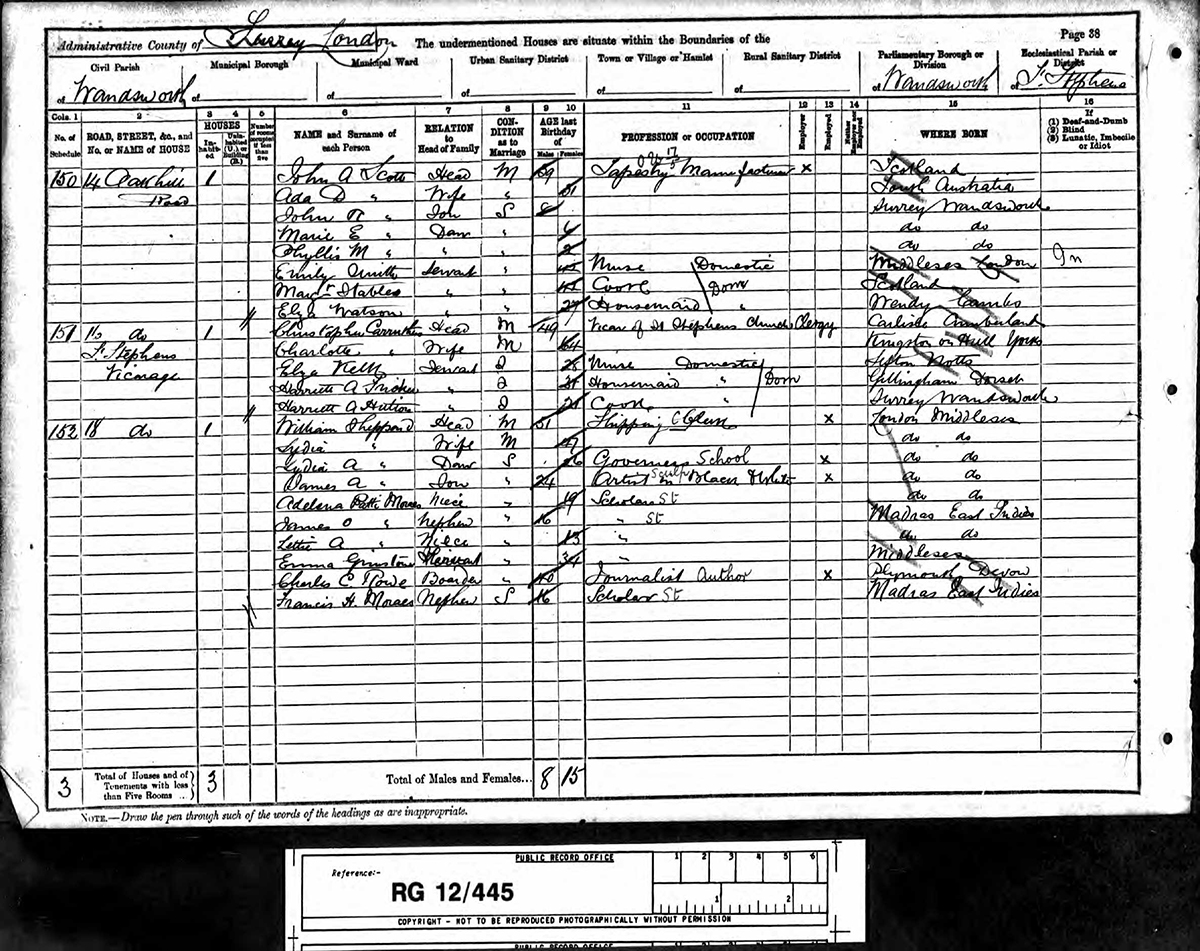 Administrative County of Surrey London The undermentioned Houses are situate within the Boundaries of the Page 38
Civil Parish Municipal Borough Municipal Ward Urban Sanitary District Town or Village or Hamlet Rural Sanitary District Parliamentary Borough or Division Ecclesiastical Parish or District
of Wandsworth of of of of of of Wandsworth of St Stephens
Cols. 1 2 3 4 5 6 7 8 9 10 11 12 13 14 15 16
No. of Schedule ROAD, STREET, &c., and No. or NAME of HOUSE HOUSES Inhabited Uninhabited (U.), or Building (B.) Number of rooms occupied if less than five NAME and Surname of each Person RELATION to Head of Family CONDITION as to Marriage AGE last Birthday of Males Females PROFESSION or OCCUPATION Employer Employed Neither Employer nor Employed WHERE BORN If (1) Deaf-and-Dumb (2) Blind (3) Lunatic, Imbecile or Idiot
150 14 Oakhill Road 1 John A Scott Head M 39 Tapestry Manufacturer x Scotland
Ada D " Wife " 31 South Australia
John R " Son S 8 Surrey Wandsworth
Marie E " Daur " 4 do do
Phyllis M " " " 2 do do
Emily Smith Servant " 42 Nurse Domestic Middlesex London
Margt Stables " " Cook Dom Scotland
Eliza Watson " " 27 Housemaid " Wendy Cambs
151 do St Stephens Vicarage 1 Christopher Carruthers Head M 49 Vicar of St Stephens Church Clergy Carlisle Cumberland
Charlotte " Wife M 44 Kingston on Hull Yorks
Eliza Servant 28 Nurse Domestic Notts
Harriett A " 21 Housemaid " Dom Gillingham Dorset
Harriett A " 21 Cook Surrey Wandsworth
152 18 do 1 William Sheppard Head M 51 Shipping Clerk x London Middlesex
Lydia " Wife M 47 do do
Lydia A " Daur S 26 Governess School x do do
James A " Son " 24 Artist in Black & White x do do
Adelina Patti Moraes Niece " 19 Scholar St do do
James O " Nephew " 16 " St Madras East Indies
Lettie A " Niece " 13 " do do
Emma Grimstone Servant " 34 " Middlesex
Charles C Rowe Boarder " 40 Journalist Author x Plymouth Devon
Francis H. Moraes Nephew S 16 Scholar St Madras East Indies
3 Total of Houses and of Tenements with less than Five Rooms 3 Total of Males and Females... 8 15
NOTE.—Draw the pen through such of the words of the headings as are inappropriate.
PUBLIC RECORD OFFICE 1 2 3 4 5 6
Reference:-
RG 12/445 1 2
COPYRIGHT - NOT TO BE REPRODUCED PHOTOGRAPHICALLY WITHOUT PERMISSION
PUBLIC RECORD OFFICE 1 2 3 4 5 6